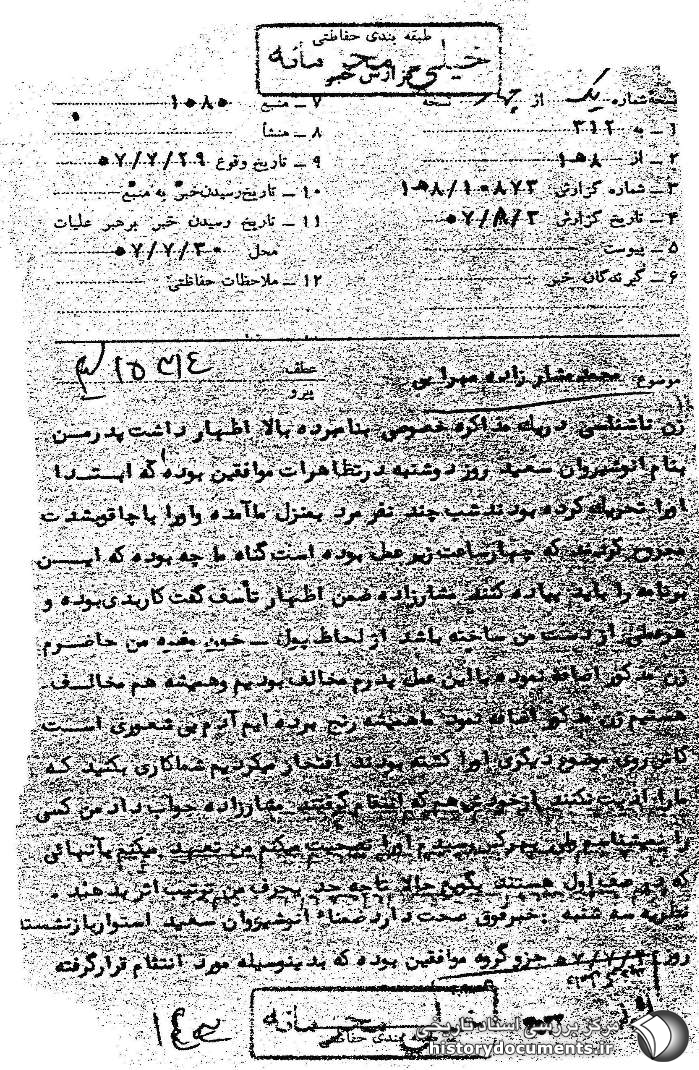 طبقه بندی حفاظتی
خیلی محرمانه
گزارش خبر
نسخه شماره یک از چهار نسخه
۱ ـ به ۳۱۲
۲ ـ از ۱۰۸
۳ ـ شماره گزارش ۱۰۸/۱۰۸۷۳
۴ ـ تاریخ گزارش ۵۷/۸/۳
۵ ـ پیوست
۶ ـ گیرندگان خبر
۷ ـ منبع ۱۰۸۰
۸ ـ منشأ
۹ ـ تاریخ وقوع ۵۷/۷/۲۹
۱۰ ـ تاریخ رسیدن خبر به منبع
۱۱ ـ تاریخ رسیدن خبر برهبر عملیات
محل ۵۷/۷/۳۰
۱۲ ـ ملاحظات حفاظتی
موضوع محمد مشارزاده مهرابی
عطف
پیرو
زن ناشناسی در یک مذاکره خصوصی بنامبرده بالا اظهار داشت پدر من
بنام انوشیروان سعید روز دوشنبه در تظاهرات موافقین بوده که ابتدا
اورا تحریک کرده بودند شب چند نفر مرد بمنزل ما آمده و اورا با چاقو بشدت
مجروح کردند که چهار ساعت زیر عمل بوده است گناه ما چه بوده که این
برنامه را باید پیاده کنند مشارزاده ضمن اظهار تأسف گفت کار بدی بوده و
هر عملی از دست من ساخته باشد از لحاظ پول ـ خون وغیره من حاضرم
زن مذکور اضافه نمود با این عمل پدرم مخالف بودیم وهمیشه هم مخالف
هستیم زن مذکور اضافه نمود ما همیشه رنج برده ایم آدم بی شعوری است
کاش روی موضوع دیگری اورا کشته بودند افتخار میکردیم شما کاری بکنید که
مارا اذیت نکنند از خودش هم که انتقام گرفتند مشارزاده جواب داد من کسی
را نمیشناسم ولی بهر کس رسیدم اورا نصیحت میکنم من تعهد میکنم بآنهائی
که در صف اول هستند بگویم حالا تا چه حد بحرف من ترتیب اثر بدهند .
نظریه سه شنبه : خبر فوق صحت دارد ضمناً انوشیروان سعید استوار بازنشسته
روز جزو گروه موافقین بوده که بدینوسیله مورد انتقام قرار گرفته
خیلی محرمانه
طبقه بندی حفاظتی
مرکز بررسی اسناد تاریخی
historydocuments.ir